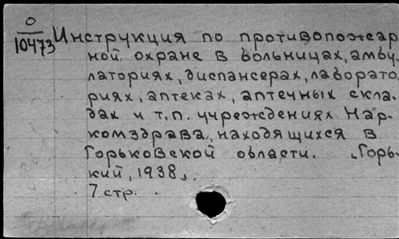 О
10473
Инструкция по противопожар
ной охране в больницах, амбу-
латориях, диспансерах, лаборато.
риях, аптеках, аптечных скла-
дах и т.п. учреждениях Нар-
комздрава, находящихся в
Горьковской области. „Горь-
кий, 1938„.
7 стр.